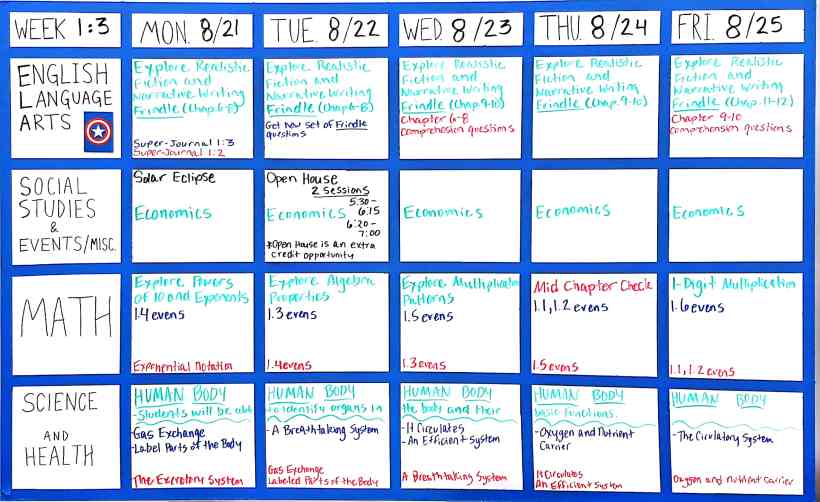 WEEK 1:3
MON. 8/21
TUE. 8/22
WED. 8/23
THU. 8/24
FRI. 8/25
ENGLISH
LANGUAGE
ARTS
Explore Realistic
Fiction and
Narrative Writing
Frindle (Chap. 6-8)
Super-Journal 1:3
Super-Journal 1:2
Explore Realistic
Fiction and
Narrative Writing
Frindle (Chap 6-8)
Get New set of Frindle
questions
Explore Realistic
Fiction and
Narrative Writing
Frindle (Chap. 9-10)
Chapter 6-8
comprehension questions
Explore Realistic
Fiction and
Narrative Writing
Frindle (Chap. 9-10)
Explore Realistic
Fiction and
Narrative Writing
Frindle (Chap. 11-12)
Chapter 9-10
comprehension questions
SOCIAL
STUDIES
&
EVENTS/MISC.
Solar Eclipse
Economics
Open House
2 Sessions
5:30-
Economics 6:15
6:20-
7:00
*Open House is an extra
credit opportunity
Economics
Economics
Economics
MATH
Explore Powers
of 10 and Exponents
1.4 evens
Exponential Notation
Explore Algebraic
Properties
1.3 evens
1.4 evens
Explore Multiplication
Patterns
1.5 evens
1.3 evens
Mid Chapter Check
1.1, 1.2 evens
1.5 evens
1-Digit Multiplication
1.6 evens
1.1, 1.2 evens
SCIENCE
AND
HEALTH
HUMAN BODY
-Students will be able
Gas Exchange
-Label Parts of the Body
The Excretory System
HUMAN BODY
to identify organs in
-A Breathtaking System
Gas Exchange
Labeled Parts of the Body
HUMAN BODY
the body and their
-It Circulates
-An Efficient System
A Breathtaking System
HUMAN BODY
basic functions.
-Oxygen and Nutrient
Carrier
It Circulates
An Efficient System
HUMAN BODY
-The Circulatory System
Oxygen and Nutrient Carrier